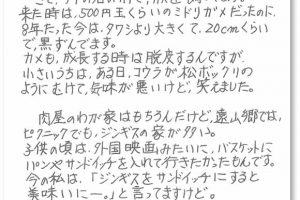 来た時は、500円玉くらいのミドリガメだったのに、
8年たった今は、タワシより大きくて、20cmくらい
で、黒ずんでます。
カメも、成長する時は脱皮するんですが、
小さいうちは、ある日、コウラが松ボックリの
ようにむけて、気味が悪いけど、笑えました。
肉屋のわが家はもちろんだけど、遠山郷では、
ピクニックでも、ジンギスの家が多い。
子供の頃は、外国映画みたいに、バスケットに
パンやサンドイッチを入れて行きたかったもんです。
今の私は、「ジンギスをサンドイッチにすると
美味いにー。」と言ってますけど。